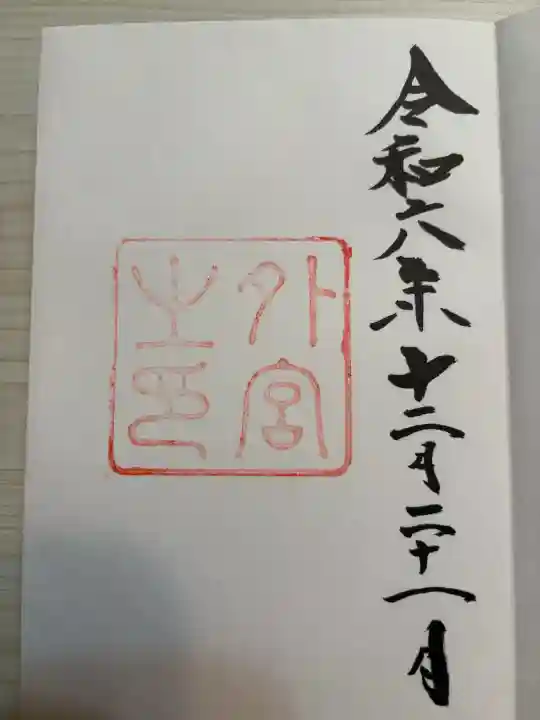 令和六年十二月二十一日
外宮
之印